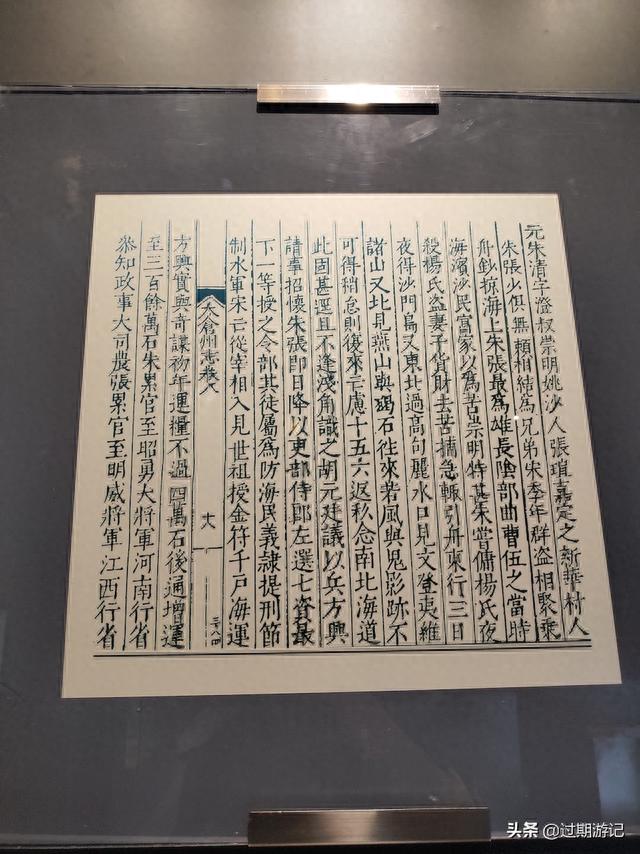 元朱清字澄叔崇明姚沙人張瑄嘉定之新華村人
朱張少俱無頼相結為兄弟宋季年群盜相聚乘
舟鈔掠海上朱張最為雄長陰部曲曹伍之當時
海濱沙民富家以為苦崇明特甚朱嘗傭楊氏夜
殺楊氏盜妻子貨財去苦捕急輙引舟東行三日
夜得沙門島又東北過高句麗水口見文登夷維
諸山又北見燕山與碣石往來若風與鬼影跡不
可得稍怠則復來亡慮十五六返私念南北海道
此固甚逕且不逢淺角識之胡元廷議以兵方興
請事招懷朱張即日降以吏部侍郎左選七資最
下一等授之令部其徒屬為防海民義隷提刑節
制水軍宋亡從宰相入見世祖授金符千戶海運
太倉州志卷八
十八
三八四
方興實與奇謀初年運糧不過四萬石後通增運
至三百餘萬石朱累官至昭勇大將軍河南行省
叅知政事大司農張累官至明威將軍江西行省
头条 @过期游记